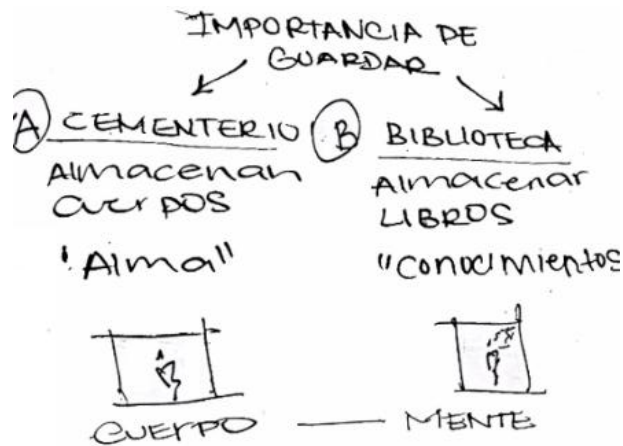 IMPORTANCIA DE
GUARDAR
A CEMENTERIO
Almacenan
cuerpos
"Alma"
B BIBLIOTECA
Almacenar
LIBROS
"conocimientos
CUERPO — MENTE